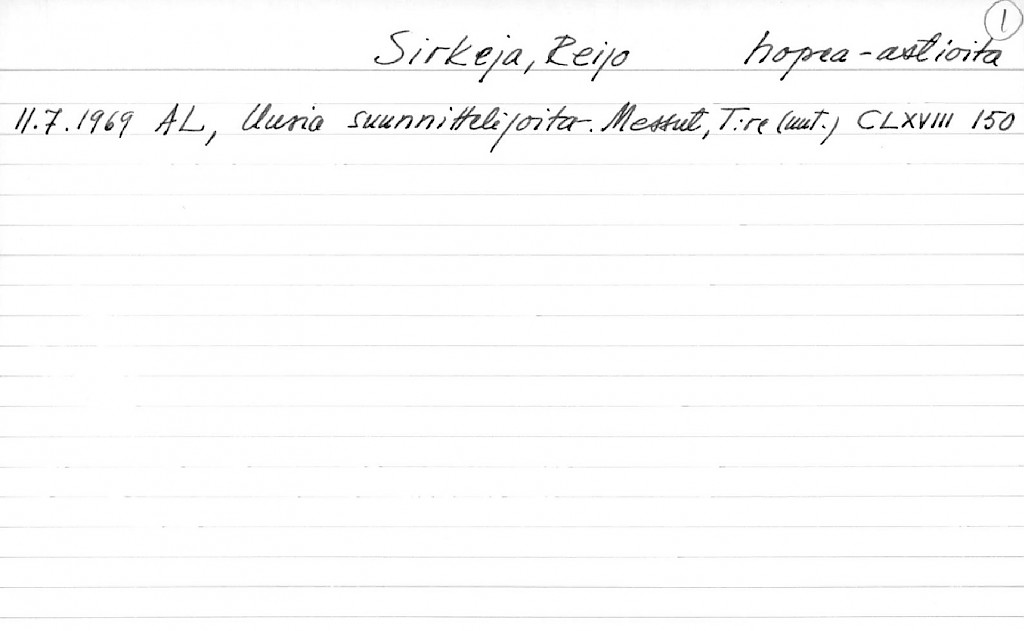 1
Sirkeja, Reijo hopea-astioita
11.7.1969 AL, Uusia suunnittelijoita. Messut, T:re (uut.) CLXVIII 150